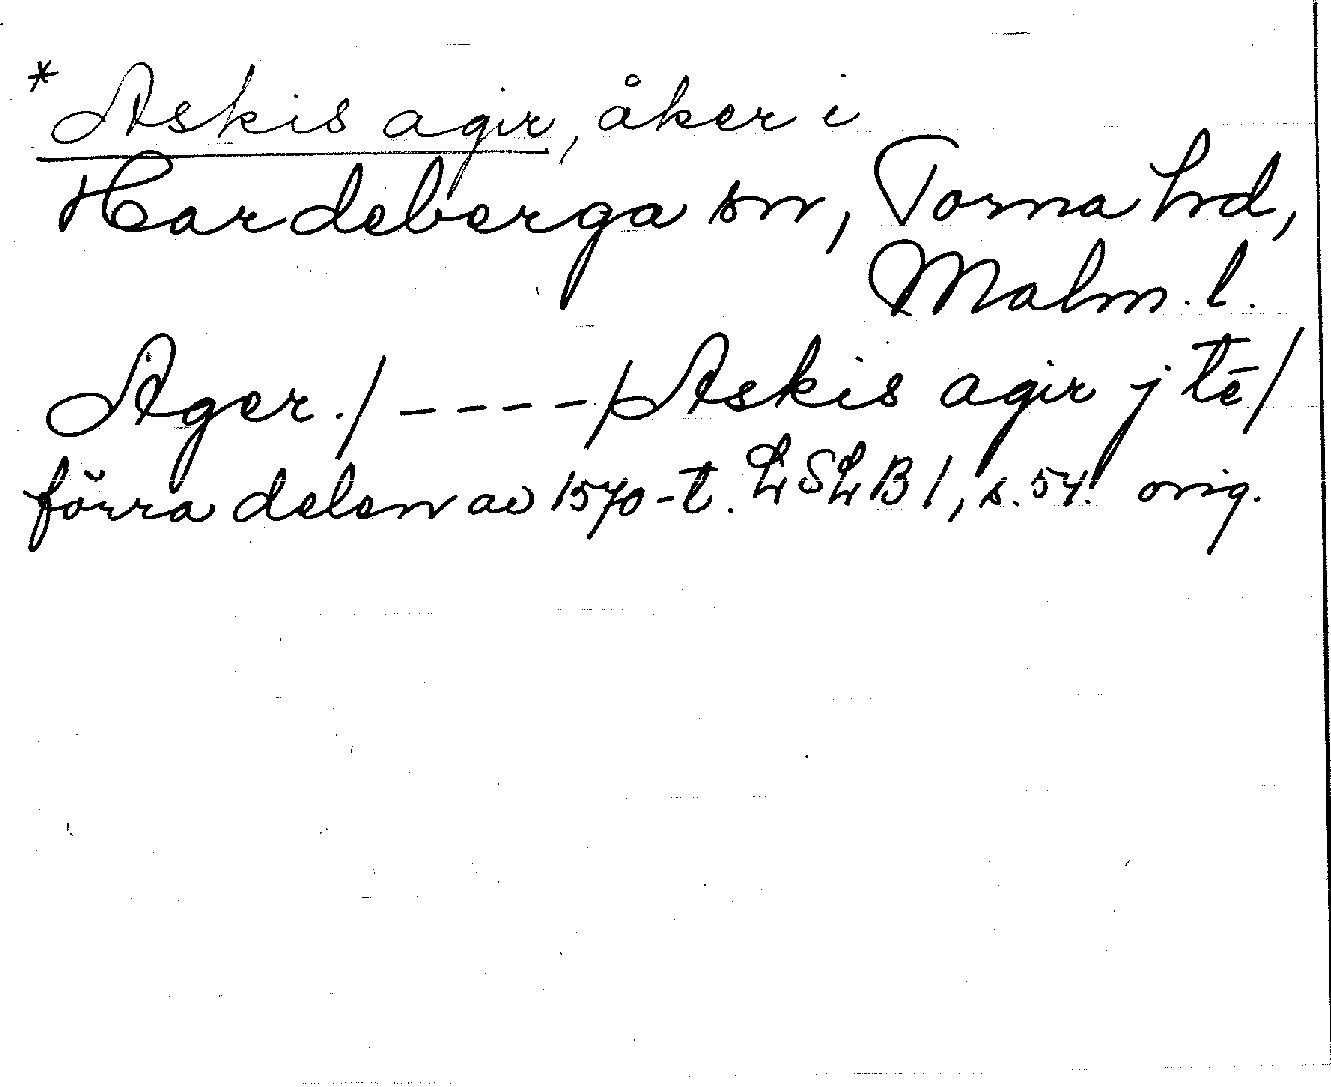 * Askis agir, åker i
Hardeberga sn, Torna hd,
Malm. l.
Ager. / ---- / Askis agir j tē /
förra delen av 1570-t. LSLB 1, s. 54. orig.